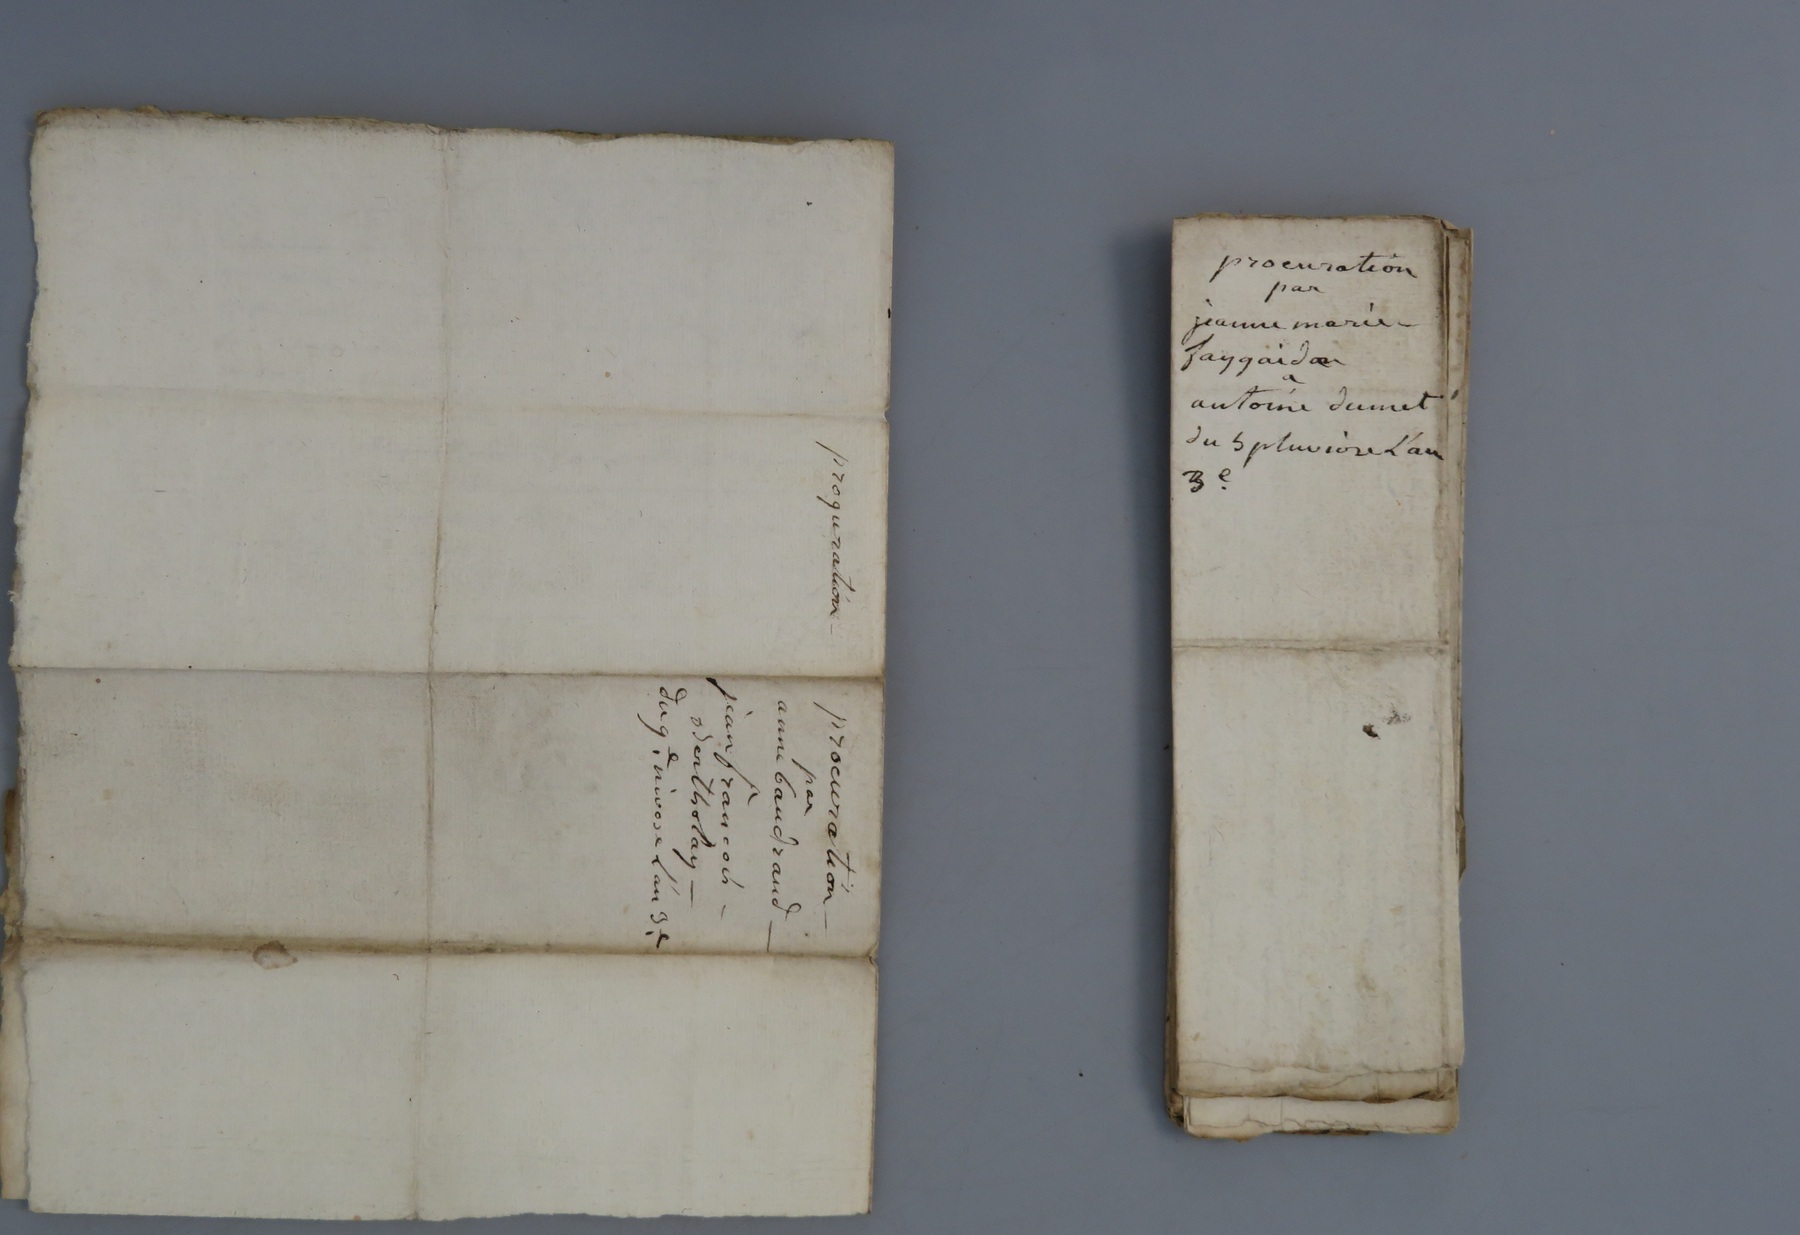 proquration
procuration
par
anne baudrand
a
jean francois
Berthollay
du 9e nivose l'an 3e
procuration
par
jeanne marie
faygaidon
a
antoine dumet
du 5 pluviose L'an
3e